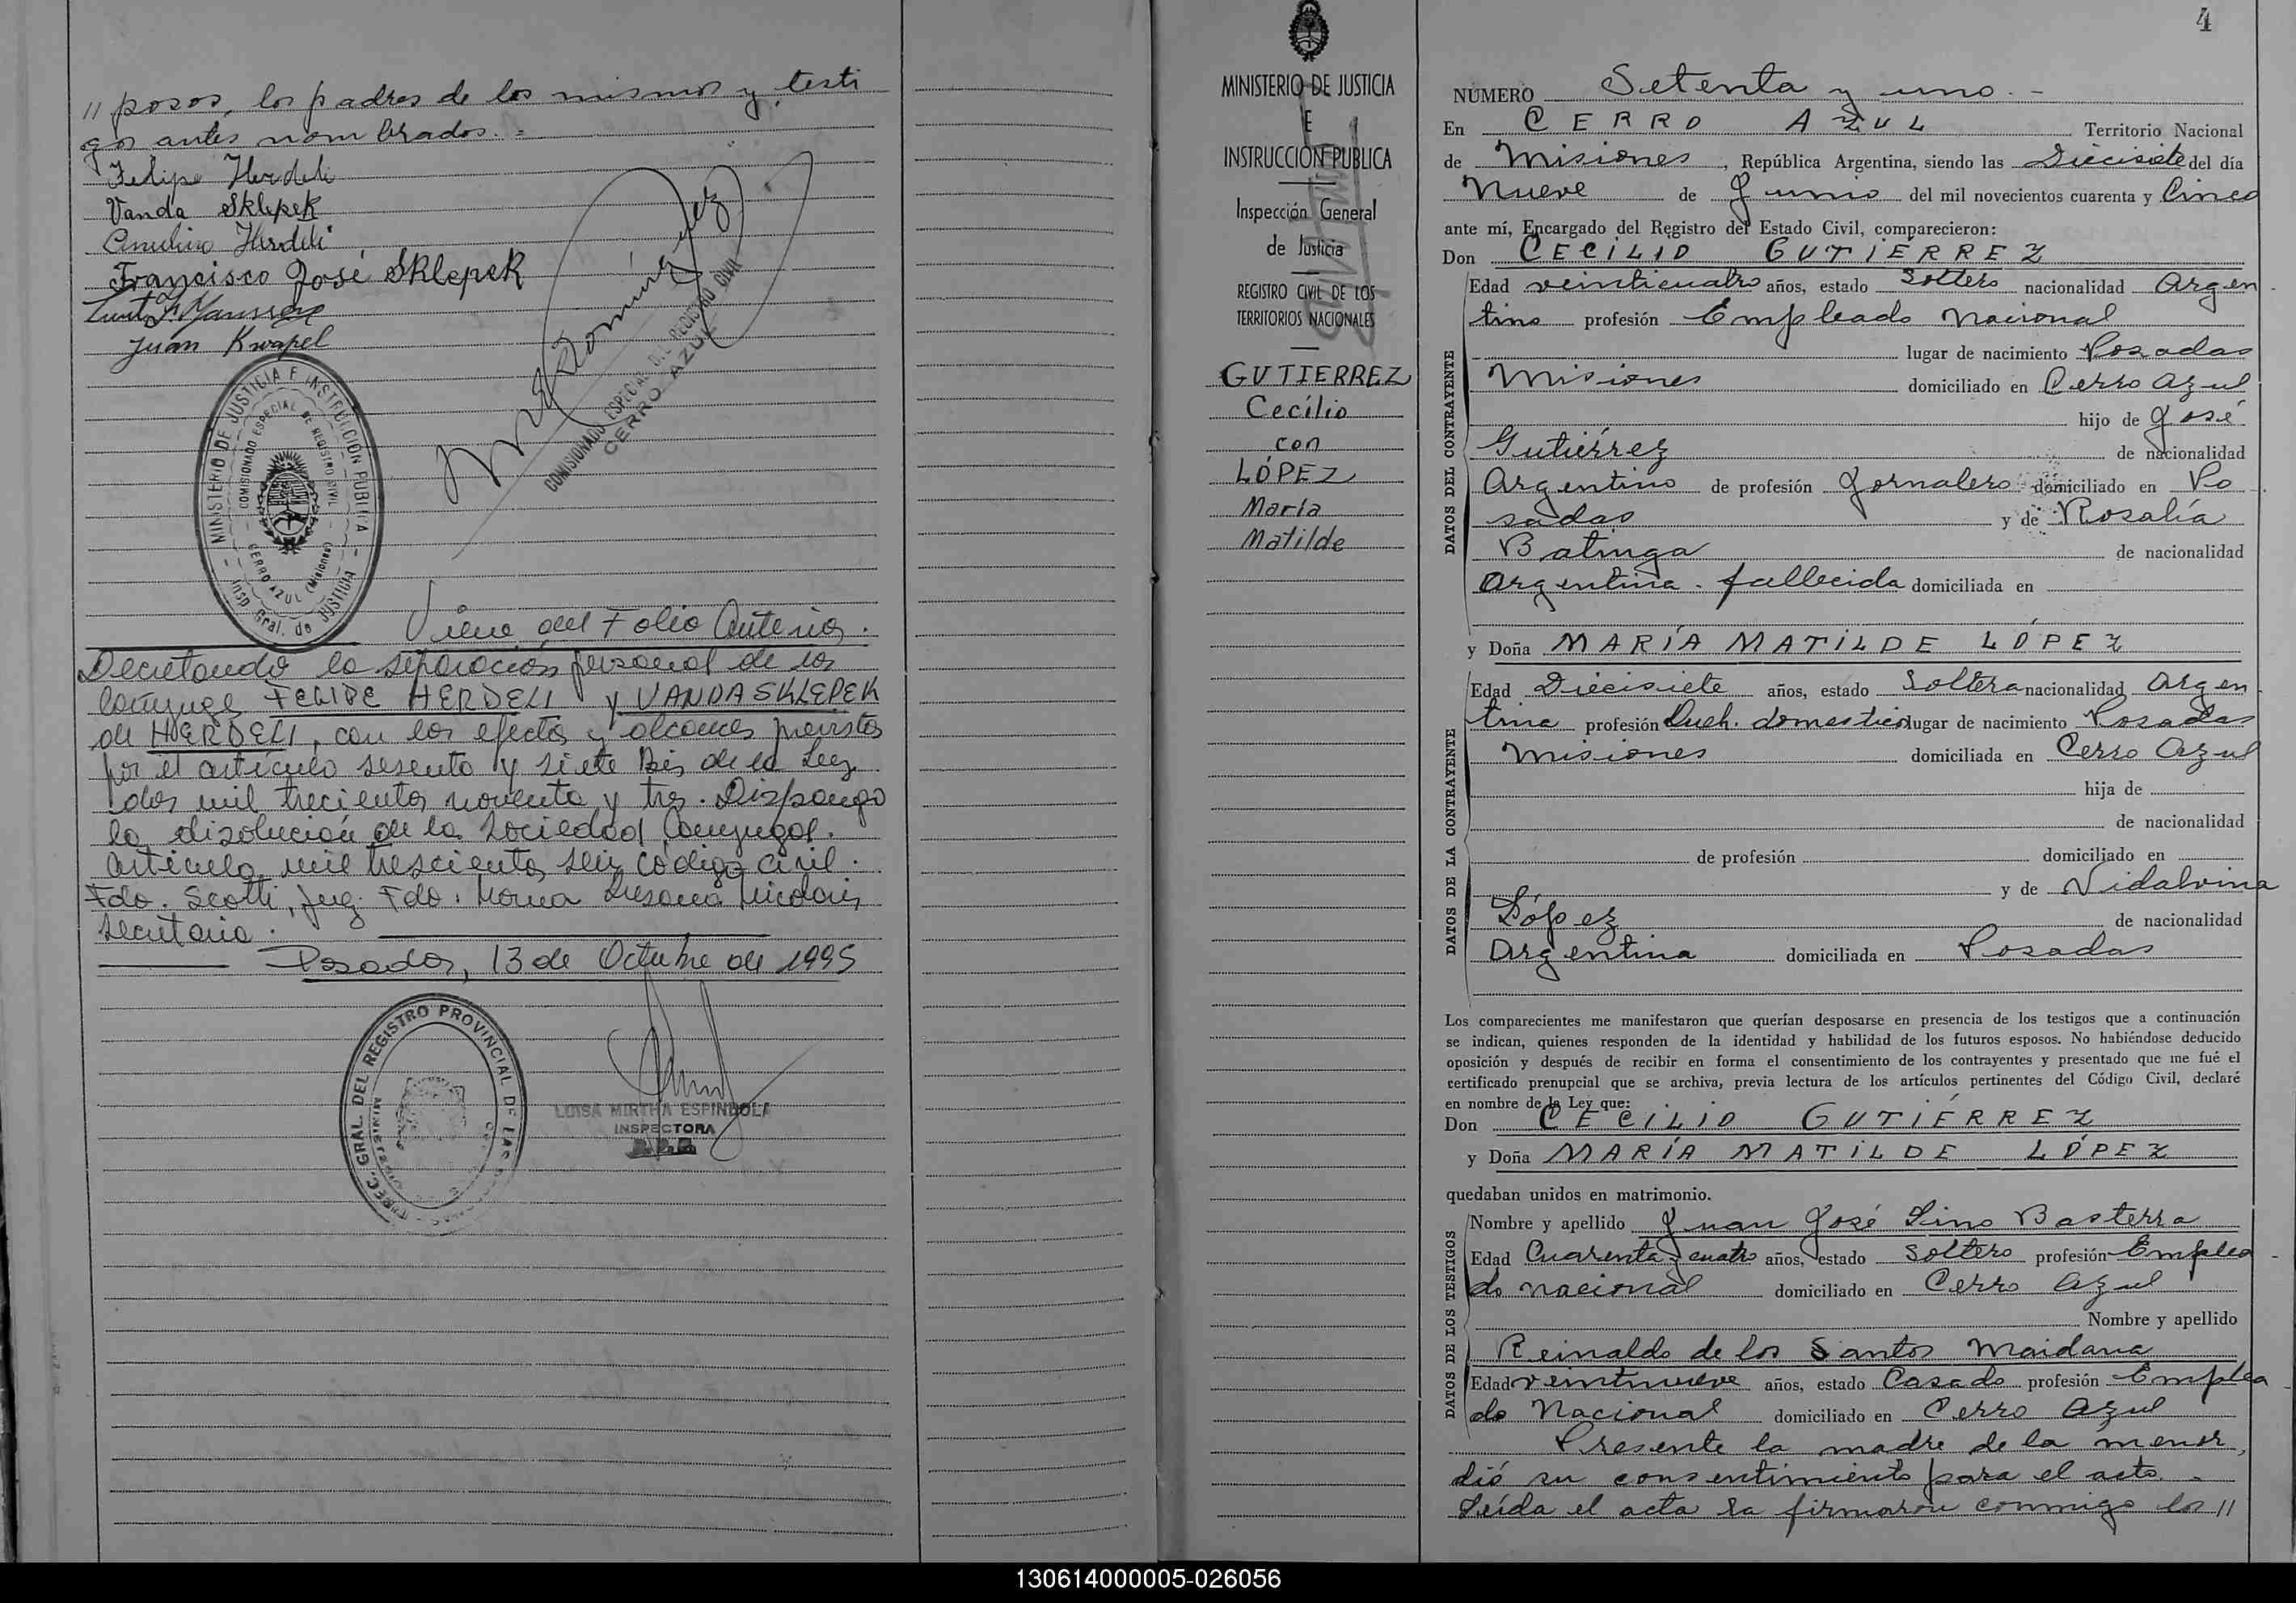 // posos, los padres de los mismos y testi
gos antes nombrados. =
Felipe Herdeli
Vanda Sklepek
Herdeli
Francisco José Sklepek
Juan Kwapel
MINISTERIO DE JUSTICIA E INSTRUCCIÓN PUBLICA
COMISIONADO ESPECIAL DE REGISTRO CIVIL
CERRO AZUL (Misiones)
Insp. Gral. de Justicia
COMISIONADO ESPECIAL DEL REGISTRO CIVIL
CERRO AZUL
Viene del Folio Anterior.
Decretando la separación personal de los
cónyuges FELIPE HERDELI y VANDA SKLEPEK
de HERDELI, con los efectos y alcances previstos
por el artículo sesenta y siete Bis de la Ley
dos mil trecientos noventa y tres. Dispongo
la disolución de la Sociedad Conyugal.
Artículo mil trescientos seis Código Civil.
Fdo. Scotti, Juez. Fdo: Norma Susana Nicolais
Secretaria.
Posadas, 13 de Octubre de 1995
DIREC. GRAL. DEL REGISTRO PROVINCIAL DE LAS PERSONAS
LUISA MIRTHA ESPINDOLA
INSPECTORA
MINISTERIO DE JUSTICIA
E
INSTRUCCIÓN PUBLICA
Inspección General
de Justicia
REGISTRO CIVIL DE LOS
TERRITORIOS NACIONALES
GUTIERREZ
Cecílio
con
LÓPEZ
María
Matilde
4
NÚMERO Setenta y uno. -
En CERRO AZUL Territorio Nacional
de Misiones, República Argentina, siendo las Diecisiete del día
Nueve de Junio del mil novecientos cuarenta y Cinco
ante mí, Encargado del Registro del Estado Civil, comparecieron:
Don CECILIO GUTIÉRREZ
DATOS DEL CONTRAYENTE
Edad veinticuatro años, estado Soltero nacionalidad Argen-
tino profesión Empleado Nacional
lugar de nacimiento Posadas
Misiones domiciliado en Cerro Azul
hijo de José
Gutiérrez de nacionalidad
Argentino de profesión Jornalero domiciliado en Po-
sadas y de Rosalía
Batinga de nacionalidad
Argentina. fallecida domiciliada en
y Doña MARÍA MATILDE LÓPEZ
DATOS DE LA CONTRAYENTE
Edad Diecisiete años, estado Soltera nacionalidad Argen-
tina profesión Queh. domestico lugar de nacimiento Posadas
Misiones domiciliada en Cerro Azul
hija de
de nacionalidad
de profesión domiciliado en
y de Vidalvina
López de nacionalidad
Argentina domiciliada en Posadas
Los comparecientes me manifestaron que querían desposarse en presencia de los testigos que a continuación
se indican, quienes responden de la identidad y habilidad de los futuros esposos. No habiéndose deducido
oposición y después de recibir en forma el consentimiento de los contrayentes y presentado que me fué el
certificado prenupcial que se archiva, previa lectura de los artículos pertinentes del Código Civil, declaré
en nombre de la Ley que:
Don CECILIO GUTIÉRREZ
y Doña MARÍA MATILDE LÓPEZ
quedaban unidos en matrimonio.
DATOS DE LOS TESTIGOS
Nombre y apellido Juan José Lino Basterra
Edad Cuarenta y cuatro años, estado Soltero profesión Emplea-
do nacional domiciliado en Cerro Azul
Nombre y apellido
Reinaldo de los Santos Maidana
Edad veintinueve años, estado Casado profesión Emplea-
do Nacional domiciliado en Cerro Azul
Presente la madre de la menor,
dió su consentimiento para el acto. -
Leída el acta la firmaron conmigo los //
130614000005-026056